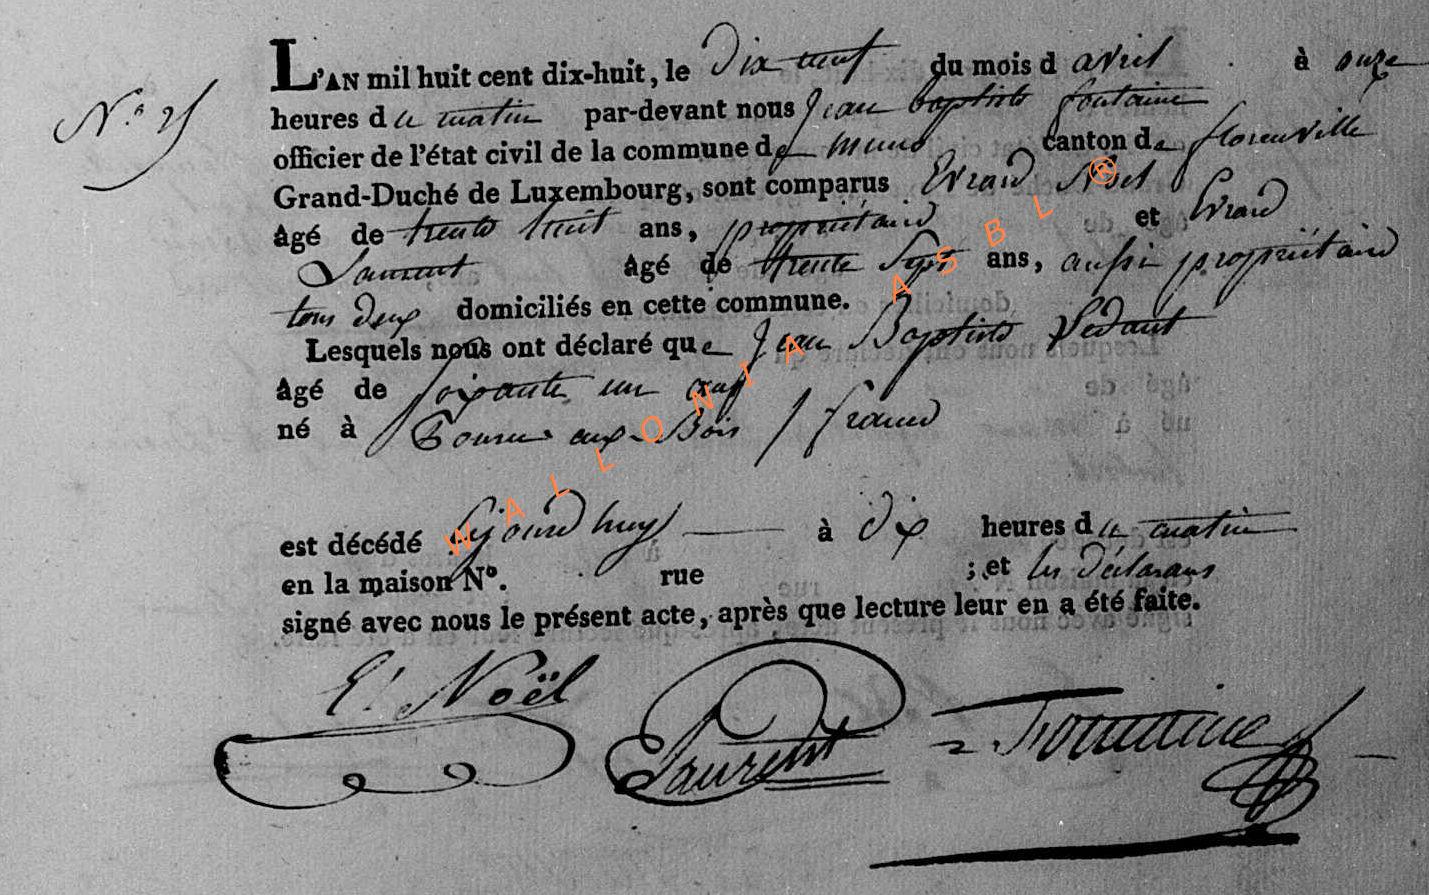 N.° 25
L'AN mil huit cent dix-huit, le Dix neuf du mois d avril à onze
heures du matin par-devant nous Jean baptiste fontaine
officier de l'état civil de la commune de muno canton de florenville
Grand-Duché de Luxembourg, sont comparus Evrard Noel
âgé de trente huit ans, propriétaire et Evrard
Laurent âgé de trente Sept ans, aussi propriétaire
tous deux domiciliés en cette commune.
Lesquels nous ont déclaré que Jean Baptiste Pedant
âgé de soixante un ans
né à aux Bois / france
est décédé ajourd huy à dix heures du matin
en la maison N°. rue ; et les déclarans
signé avec nous le présent acte, après que lecture leur en a été faite.
E. Noël Laurent Fontaine
WALLONIA ASBL ®